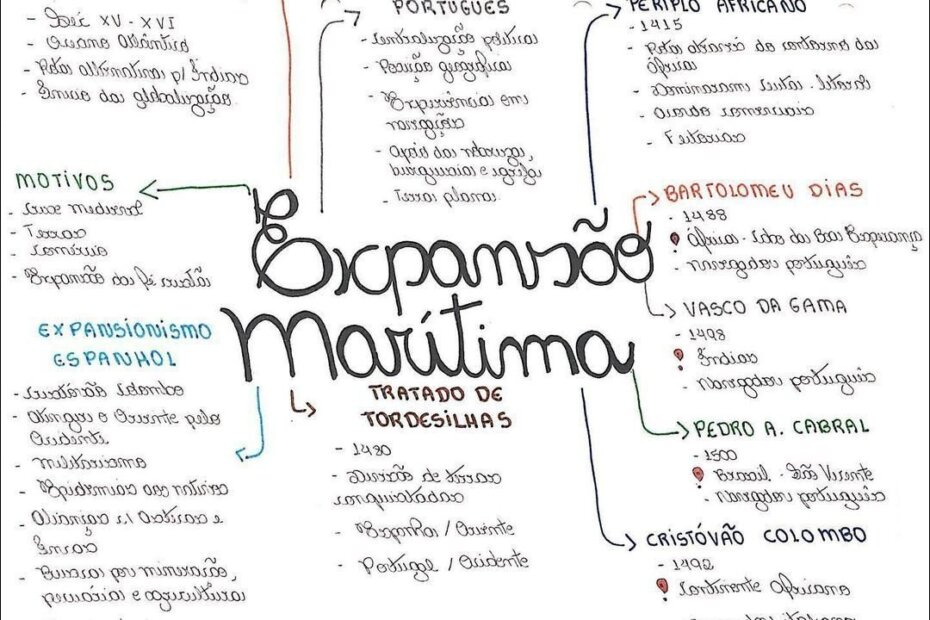 - Séc XV - XVI
- Oceano Atlântico
- Rotas alternativas p/ Índias
- Início da globalização
PORTUGUÊS
- centralização política
- Posição geográfica
- Experiências em
navegação
- Apoio da nobreza,
burguesia e igreja
- Terras planas
PÉRIPLO AFRICANO
- 1415
- Rotas através do contorno da
África
- Dominaram Ceuta - litoral
- Acordo comerciais
- Feitorias
MOTIVOS
- Crise medieval
- Terras
- Comércio
- Expansão da fé cristã
Expansão
Marítima
BARTOLOMEU DIAS
- 1488
África - Cabo da Boa Esperança
- navegador português
VASCO DA GAMA
- 1498
Índias
- navegador português
EXPANSIONISMO
ESPANHOL
- Cristóvão Colombo
- Atingir o Oriente pelo
Ocidente
- militarismo
- Epidemias aos nativos
- Alianças c/ Astecas e
Incas
- Buscas por mineração,
pecuária e agricultura
TRATADO DE
TORDESILHAS
- 1480
- Divisão de terras
conquistadas
- Espanha / Oriente
- Portugal / Ocidente
PEDRO A. CABRAL
- 1500
Brasil - São Vicente
- navegador português
CRISTÓVÃO COLOMBO
- 1492
Continente Africano